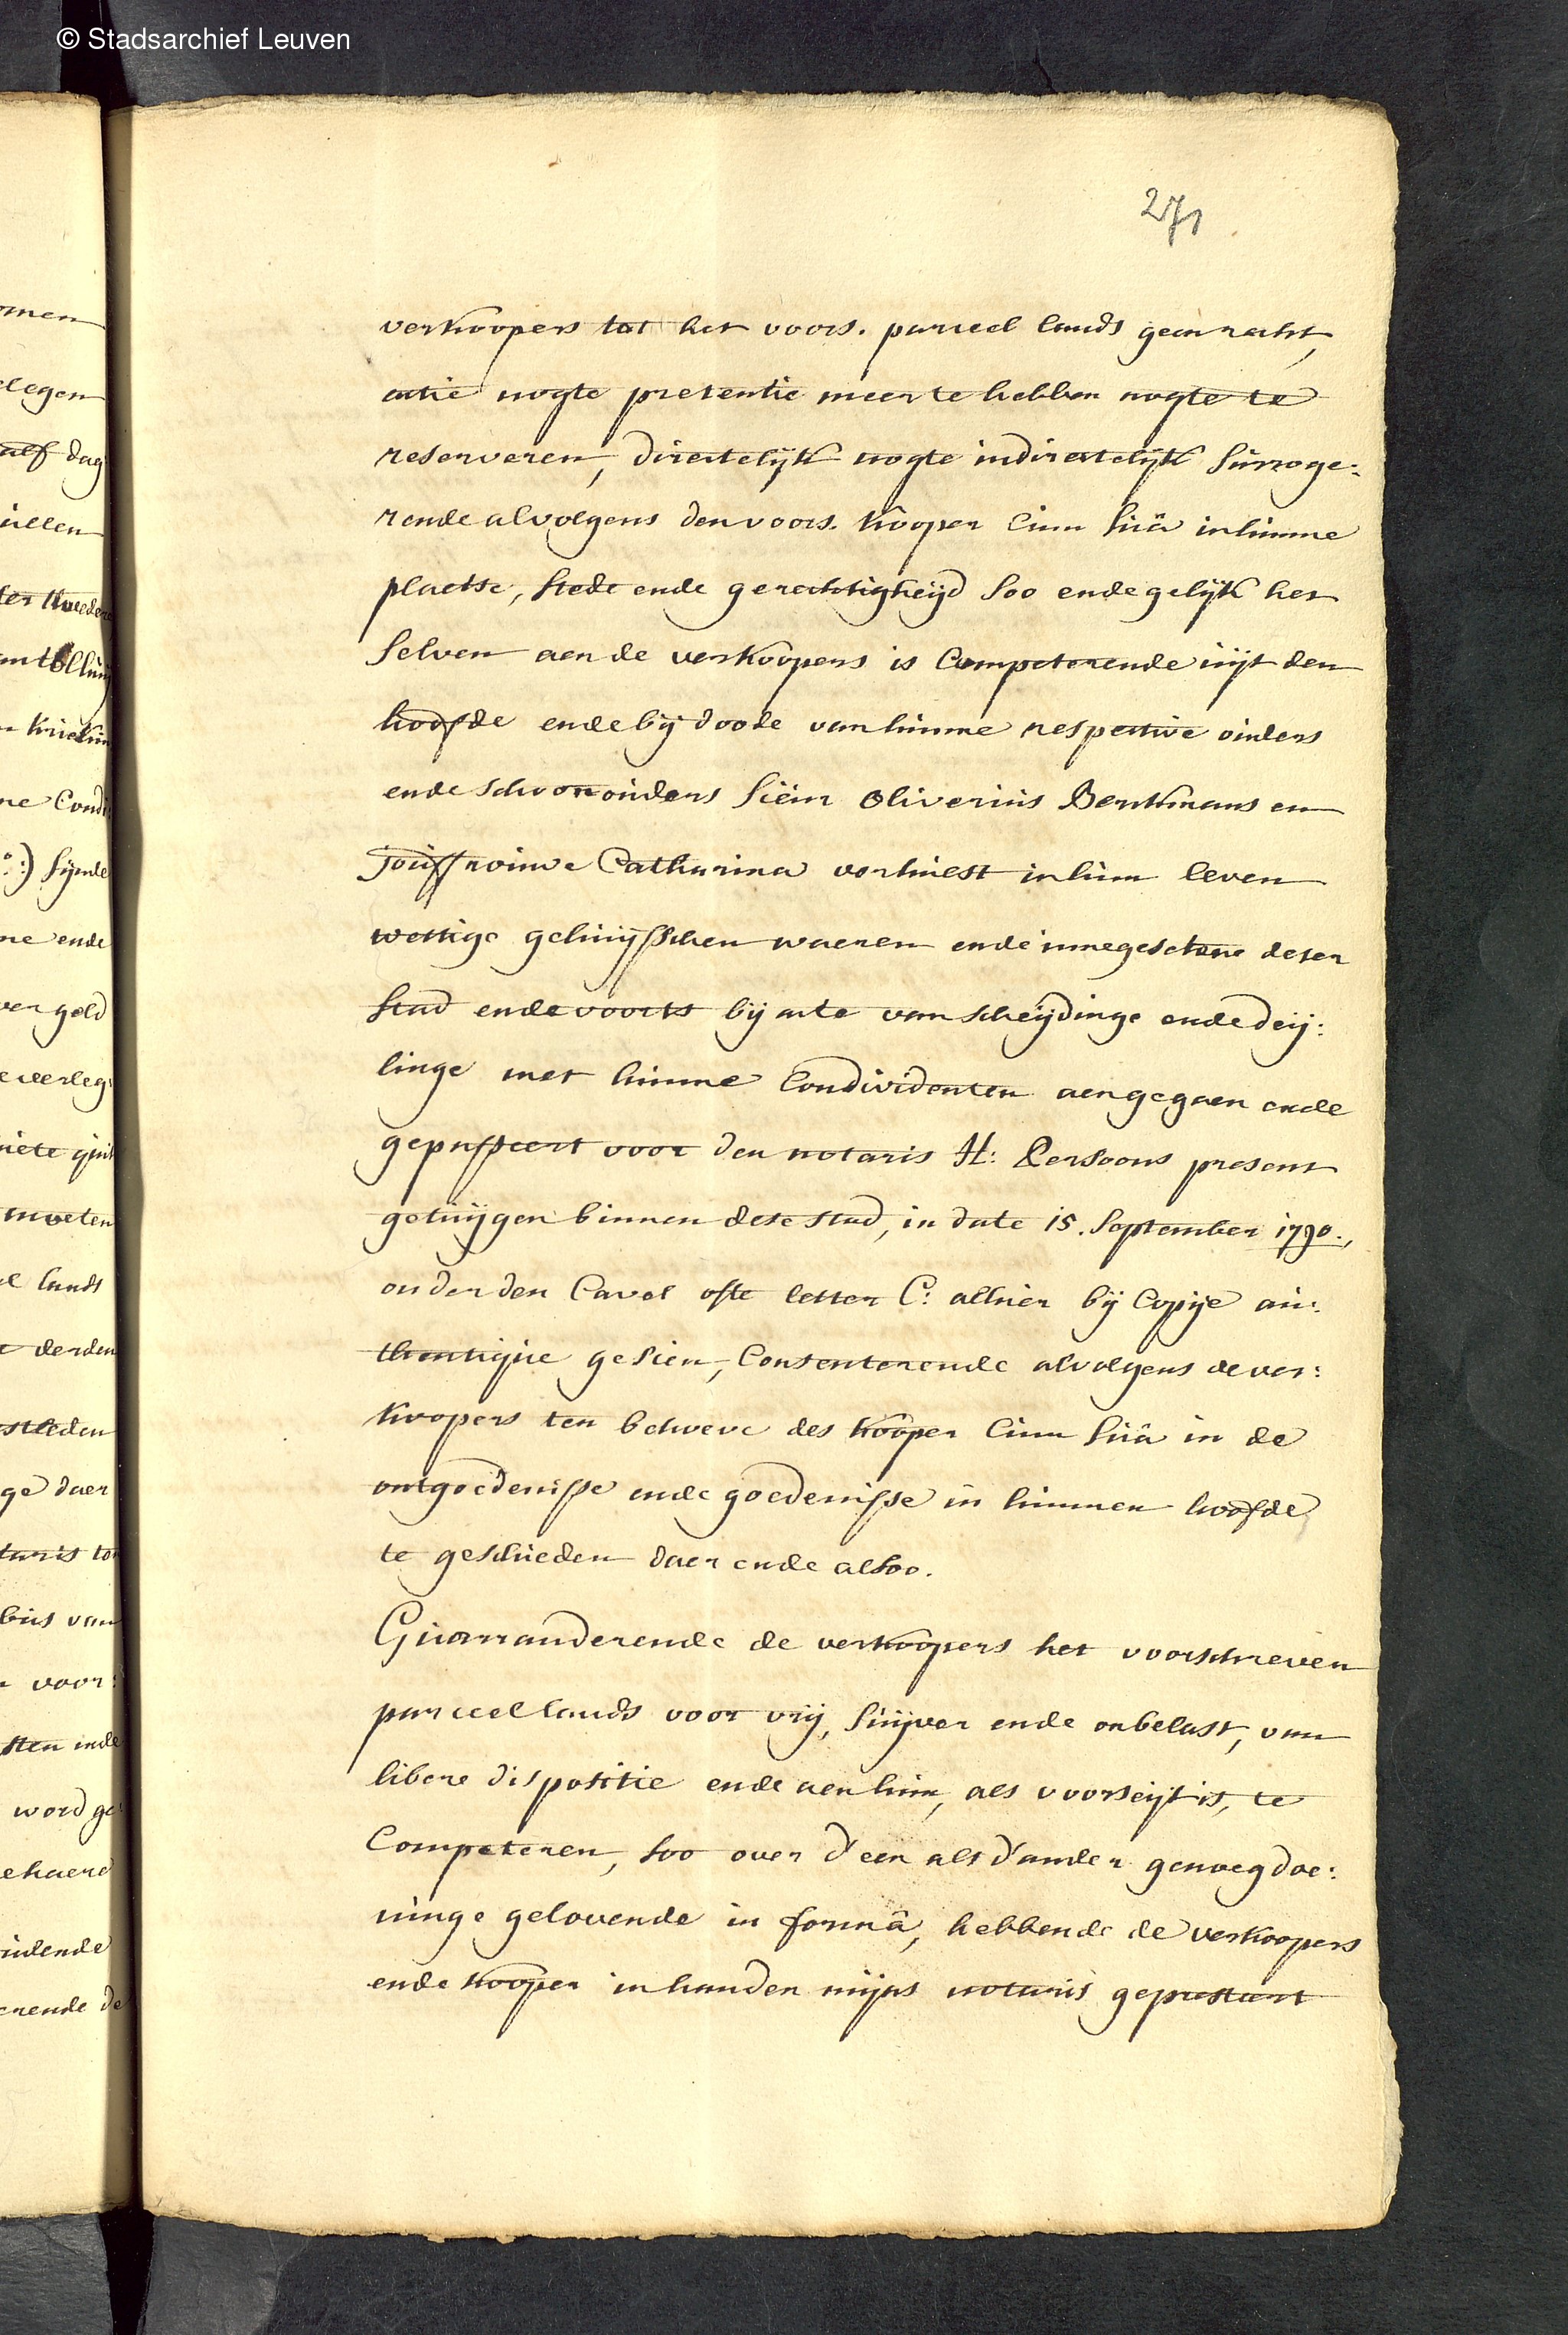 © Stadsarchief Leuven
271
verkoopers tot het voors. parceel lands geen recht,
actie nogte pretentie meer te hebben nogte te
reserveren, directelijk nogte indirectelijk surroge:
rende alvolgens den voors. kooper cum suâ in hunne
plaetse, stede ende gerechtigheijd soo ende gelijk het
selven aen de verkoopers is Competerende uijt den
hoofde ende bij doode van hunne respective ouders
ende schoonouders sieur Oliverius Berckmans en
Jouffrouwe Catharina verhulst in hun leven
wettige gehuijsschen waeren ende innegesetene deser
stad ende voorts bij acte van scheijdinge ende deij:
linge met hunne Condividenten aengegaen ende
gepasseert voor den notaris H: Persoons present
getuijgen binnen dese stad, in date 15. September 1790.,
onder den Cavel ofte letter C: alhier bij Copije au:
thentique gesien, Consenterende alvolgens de ver:
koopers ten behoeve des kooper cum suâ in de
ontgoedenisse ende goedenisse in hunnen hoofde
te geschieden daer ende alsoo.
Guarranderende de verkoopers het voorschreven
parceel lands voor vrij, suijver ende onbelast, van
libere dispositie ende aen hun, als voorseijt is, te
Competeren, soo over d'een als d'ander genoegdoe:
ninge gelovende in formâ, hebbende de verkoopers
ende kooper in handen mijns notaris gepresteert
omen
elegen
alf dag
ullen
ne Cond
:) sijnde
ne ende
ver geld
moeten
lands
derden
ge daer
bus van
voor:
word ge
erende de